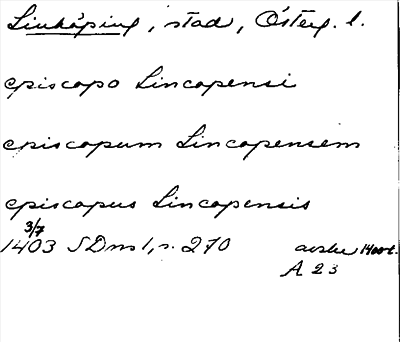 Linköping, stad, Österg. l.
episcopo Lincopensi
episcopum Lincopensem
episcopus Lincopensis
3/7
1403 SDns 1, s. 270 avskr 1400t.
A 23